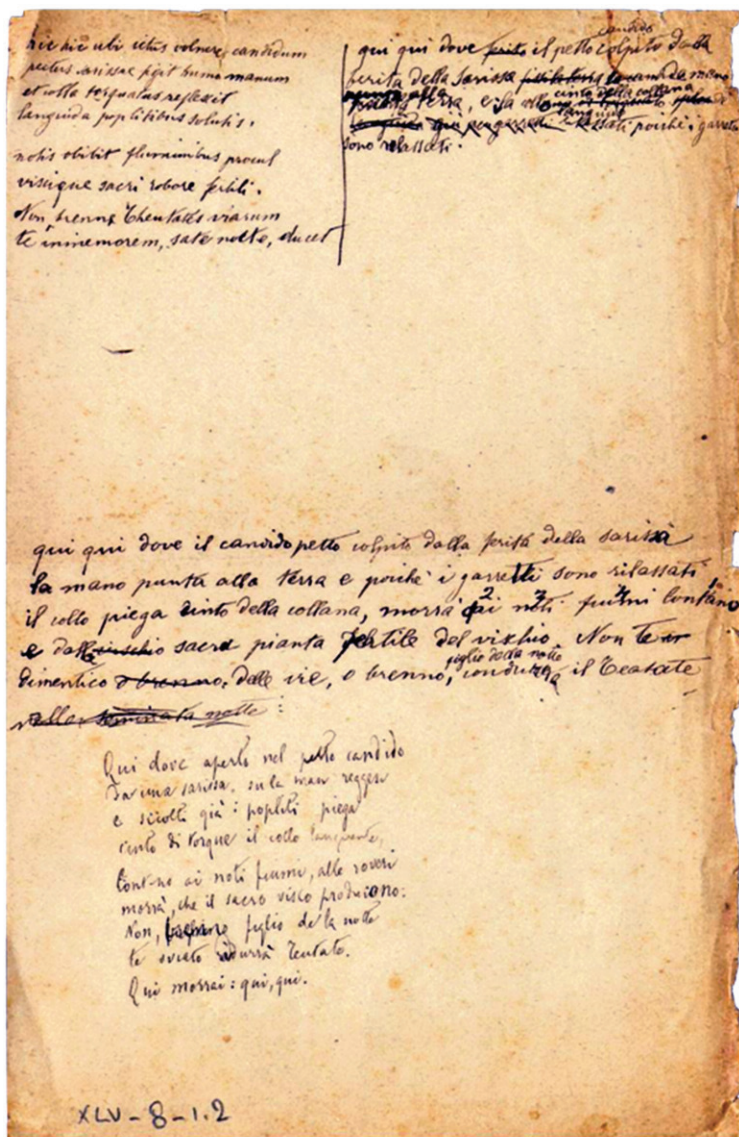 hic hic ubi ictus volnere candidum
pectus sarissae figit humo manum
et collo torquatus reflexit
languida poplitibus solutis.
notis obibit fluminibus procul
viscique sacri robore fertili.
Non, brenne Theutates viarum
te inmemorem, sate nocte, ducet
candido
qui qui dove ferito il petto colpito dalla
ferita della sarissa la mano
punta alla terra, e la collo cinto della collana
languido rilassati poichè i garretti
sono rilassati.
qui qui dove il candido petto colpito dalla ferita della sarissa
la mano punta alla terra e poichè i garretti sono rilassati
il collo piega cinto della collana, morrà ai noti fiumi lontano
e dalla vischio sacra pianta fertile del vischio. Non te
figlio della notte
dimentico o brenno. delle vie, o brenno, condurrà il Teutate
nella notte
Qui dove aperto nel petto candido
Da una sarissa, su la man reggesi
e sciolti già i popliti piega
cinto di torque il collo languente,
Lontano ai noti fiumi, alle roveri
morrà, che il sacro visco producono:
Non, figlio de la notte
te svieto Teutate.
Qui morrai: qui, qui.
XLV-8-1.2